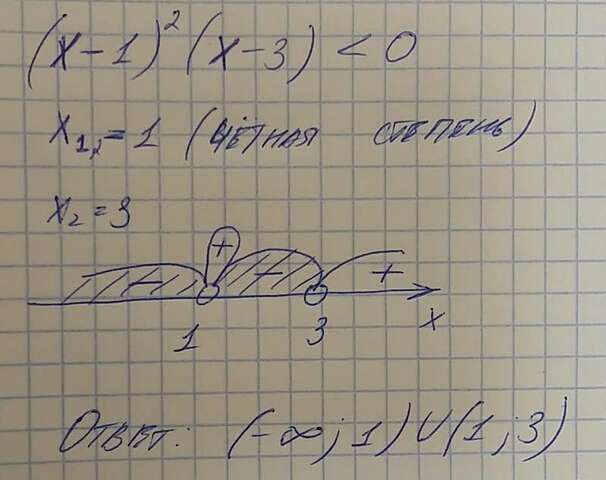 (x-1)² (x-3) < 0
x₁,₂ = 1 (чётная степень)
x₂ = 3
+
- - +
1 3 x
Ответ: (-∞; 1) ∪ (1; 3)